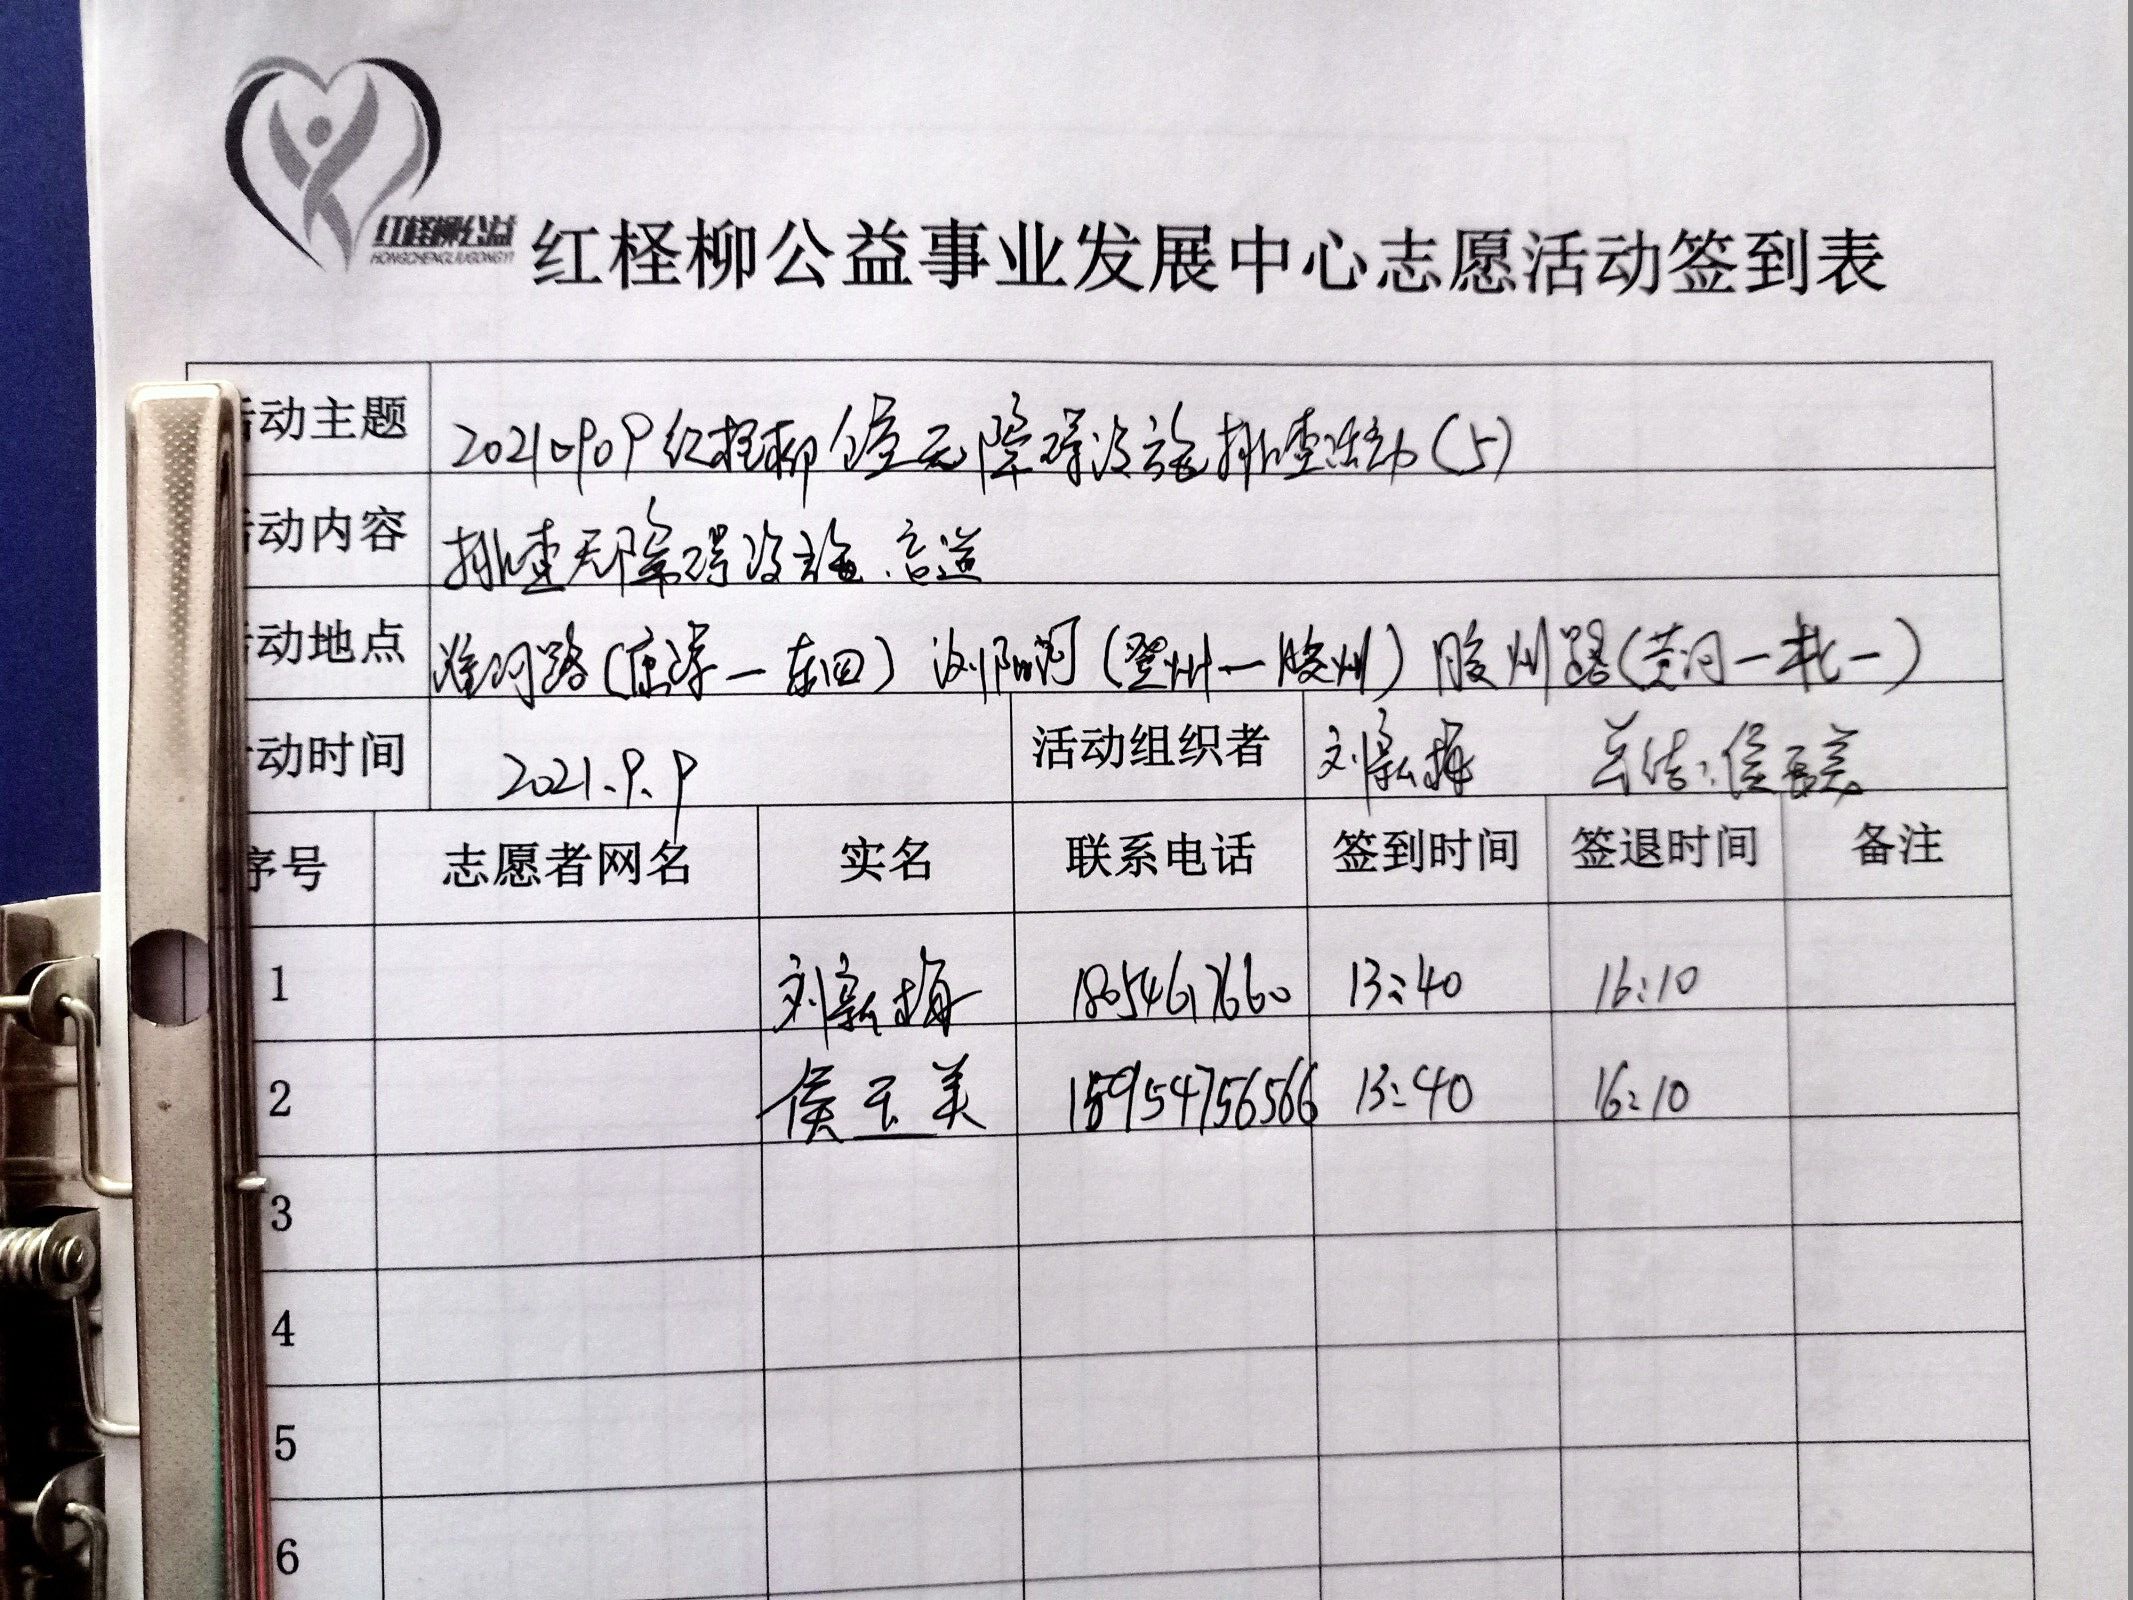 红柽柳公益
HONGCHENGLIUGONGYI
红柽柳公益事业发展中心志愿活动签到表
活动主题 20210909红柽柳 无障碍设施排查活动(5)
活动内容 排查无障碍设施、盲道
活动地点 淮河路(东四) 浏阳河(登州一胶州)胶州路(黄河一北一)
活动时间 2021.9.9 活动组织者 刘新梅 总结:侯玉美
序号 志愿者网名 实名 联系电话 签到时间 签退时间 备注
1 刘新梅 13:40 16:10
2 侯玉美 15954756566 13:40 16:10
3
4
5
6